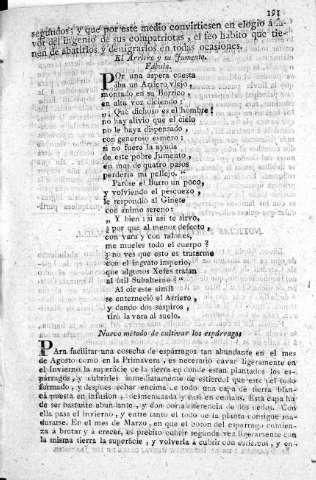 191
segundos; y que por este medio convirtiesen en elogio á fa-
vor del ingenio de sus compatriotas, el feo hábito que tie-
nen de abatirlos y denigrarlos en todas ocasiones.
El Arriero y su Jumento.
Fábula.
POr una áspera cuesta
iba un Arriero viejo,
montado en su Borrico,
en alta voz diciendo:
„¡Que dichoso es el hombre!
no hay alivio que el cielo
no le haya dispensado,
con generoso esmero:
si no fuera la ayuda
de este pobre Jumento,
en mas de quatro pasos
perderia mi pellejo.“
Paróse el Burro un poco,
y volviendo el pescuezo,
le respondió al Ginete
con ánimo sereno:
„Y bien: si asi te sirvo,
¿por qué al menor defecto,
con vara y con talones,
me mueles todo el cuerpo?
¿no ves que esto es tratarme
con el ingrato imperio,
que algunos Xefes tratan
al útil Subalterno?“
Al oir este simil
se enterneció el Arriero,
y dando dos suspiros,
tiró la vara al suelo.
Nuevo método de cultivar los espárragos.
PAra facilitar una cosecha de espárragos tan abundante en el mes
de Agosto como en la Primavera, es necesario cavar ligeramente en
el Invierno la superficie de la tierra en donde estan plantados los es-
párragos, y cubrirles inmediatamente de estiercol que esté del todo
formado, y despues echar encima de todo una capa de tierra blan-
ca puesta en infusion, desmenuzada y casi en cenizas. Esta capa ha
de ser bastante abundante, y don de los dedos. Con
ella pasa el invierno, y entre tanto el todo de la planta consigue ma-
durarse. En el mes de Marzo, en que el boton del esparrago comien-
za á brotar y á crecer, es preciso cubrir segunda vez ligeramente con
la misma tierra la superficie, y volverla á cubrir con estiercol, y en-